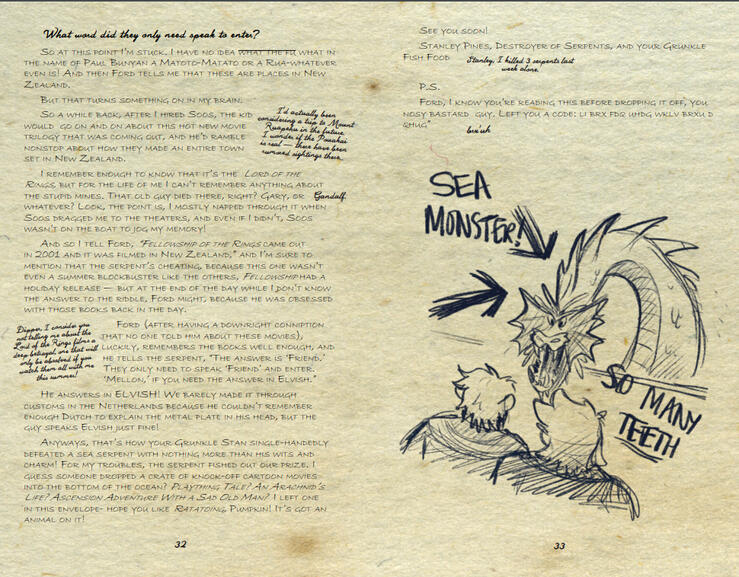 What word did they only need speak to enter?
So at this point I'm stuck. I have no idea what the fu what in
the name of Paul Bunyan a Matoto-Matato or a Rua-whatever
even is! And then Ford tells me that these are places in New
Zealand.
But that turns something on in my brain.
So a while back, after I hired Soos, the kid
would go on and on about this hot new movie
trilogy that was coming out, and he'd ramble
nonstop about how they made an entire town
set in New Zealand.
I'd actually been
considering a trip to Mount
Ruapehu in the future.
I wonder if the Poukahai
is real — there have been
rumored sightings there.
I remember enough to know that it's the Lord of the
Rings, but for the life of me I can't remember anything about
the stupid mines. That old guy died there, right? Gary, or
Gandalf.
whatever? Look, the point is, I mostly napped through it when
Soos dragged me to the theaters, and even if I didn't, Soos
wasn't on the boat to jog my memory!
And so I tell Ford, "Fellowship of the Rings came out
in 2001 and it was filmed in New Zealand," and I'm sure to
mention that the serpent's cheating, because this one wasn't
even a summer blockbuster like the others, Fellowship had a
holiday release — but at the end of the day while I don't know
the answer to the riddle, Ford might, because he was obsessed
with those books back in the day.
Dipper, I consider you
not telling me about the
Lord of the Rings films a
deep betrayal one that will
only be absolved if you
watch them all with me
this summer!
Ford (after having a downright conniption
that no one told him about these movies),
luckily, remembers the books well enough, and
he tells the serpent, "The answer is 'Friend.'
They only need to speak 'Friend' and enter.
'Mellon,' if you need the answer in Elvish."
He answers in ELVISH! We barely made it through
customs in the Netherlands because he couldn't remember
enough Dutch to explain the metal plate in his head, but the
guy speaks Elvish just fine!
Anyways, that's how your Grunkle Stan single-handedly
defeated a sea serpent with nothing more than his wits and
charm! For my troubles, the serpent fished out our prize. I
guess someone dropped a crate of knock-off cartoon movies
into the bottom of the ocean? Plaything Tale? An Arachnid's
Life? Ascension Adventure With a Sad Old Man? I left one
in this envelope- hope you like Ratatoing Pumpkin! It's got an
animal on it!
32
See you soon!
Stanley Pines, Destroyer of Serpents, and your Grunkle
Fish Food
Stanley, I killed 3 serpents last
week alone.
P.S.
Ford, I know you're reading this before dropping it off, you
nosy bastard guy. Left you a code: Li brx fdq uhdg wklv brxu d
qhug"
brx'uh
SEA
MONSTER!
SO MANY
TEETH
33